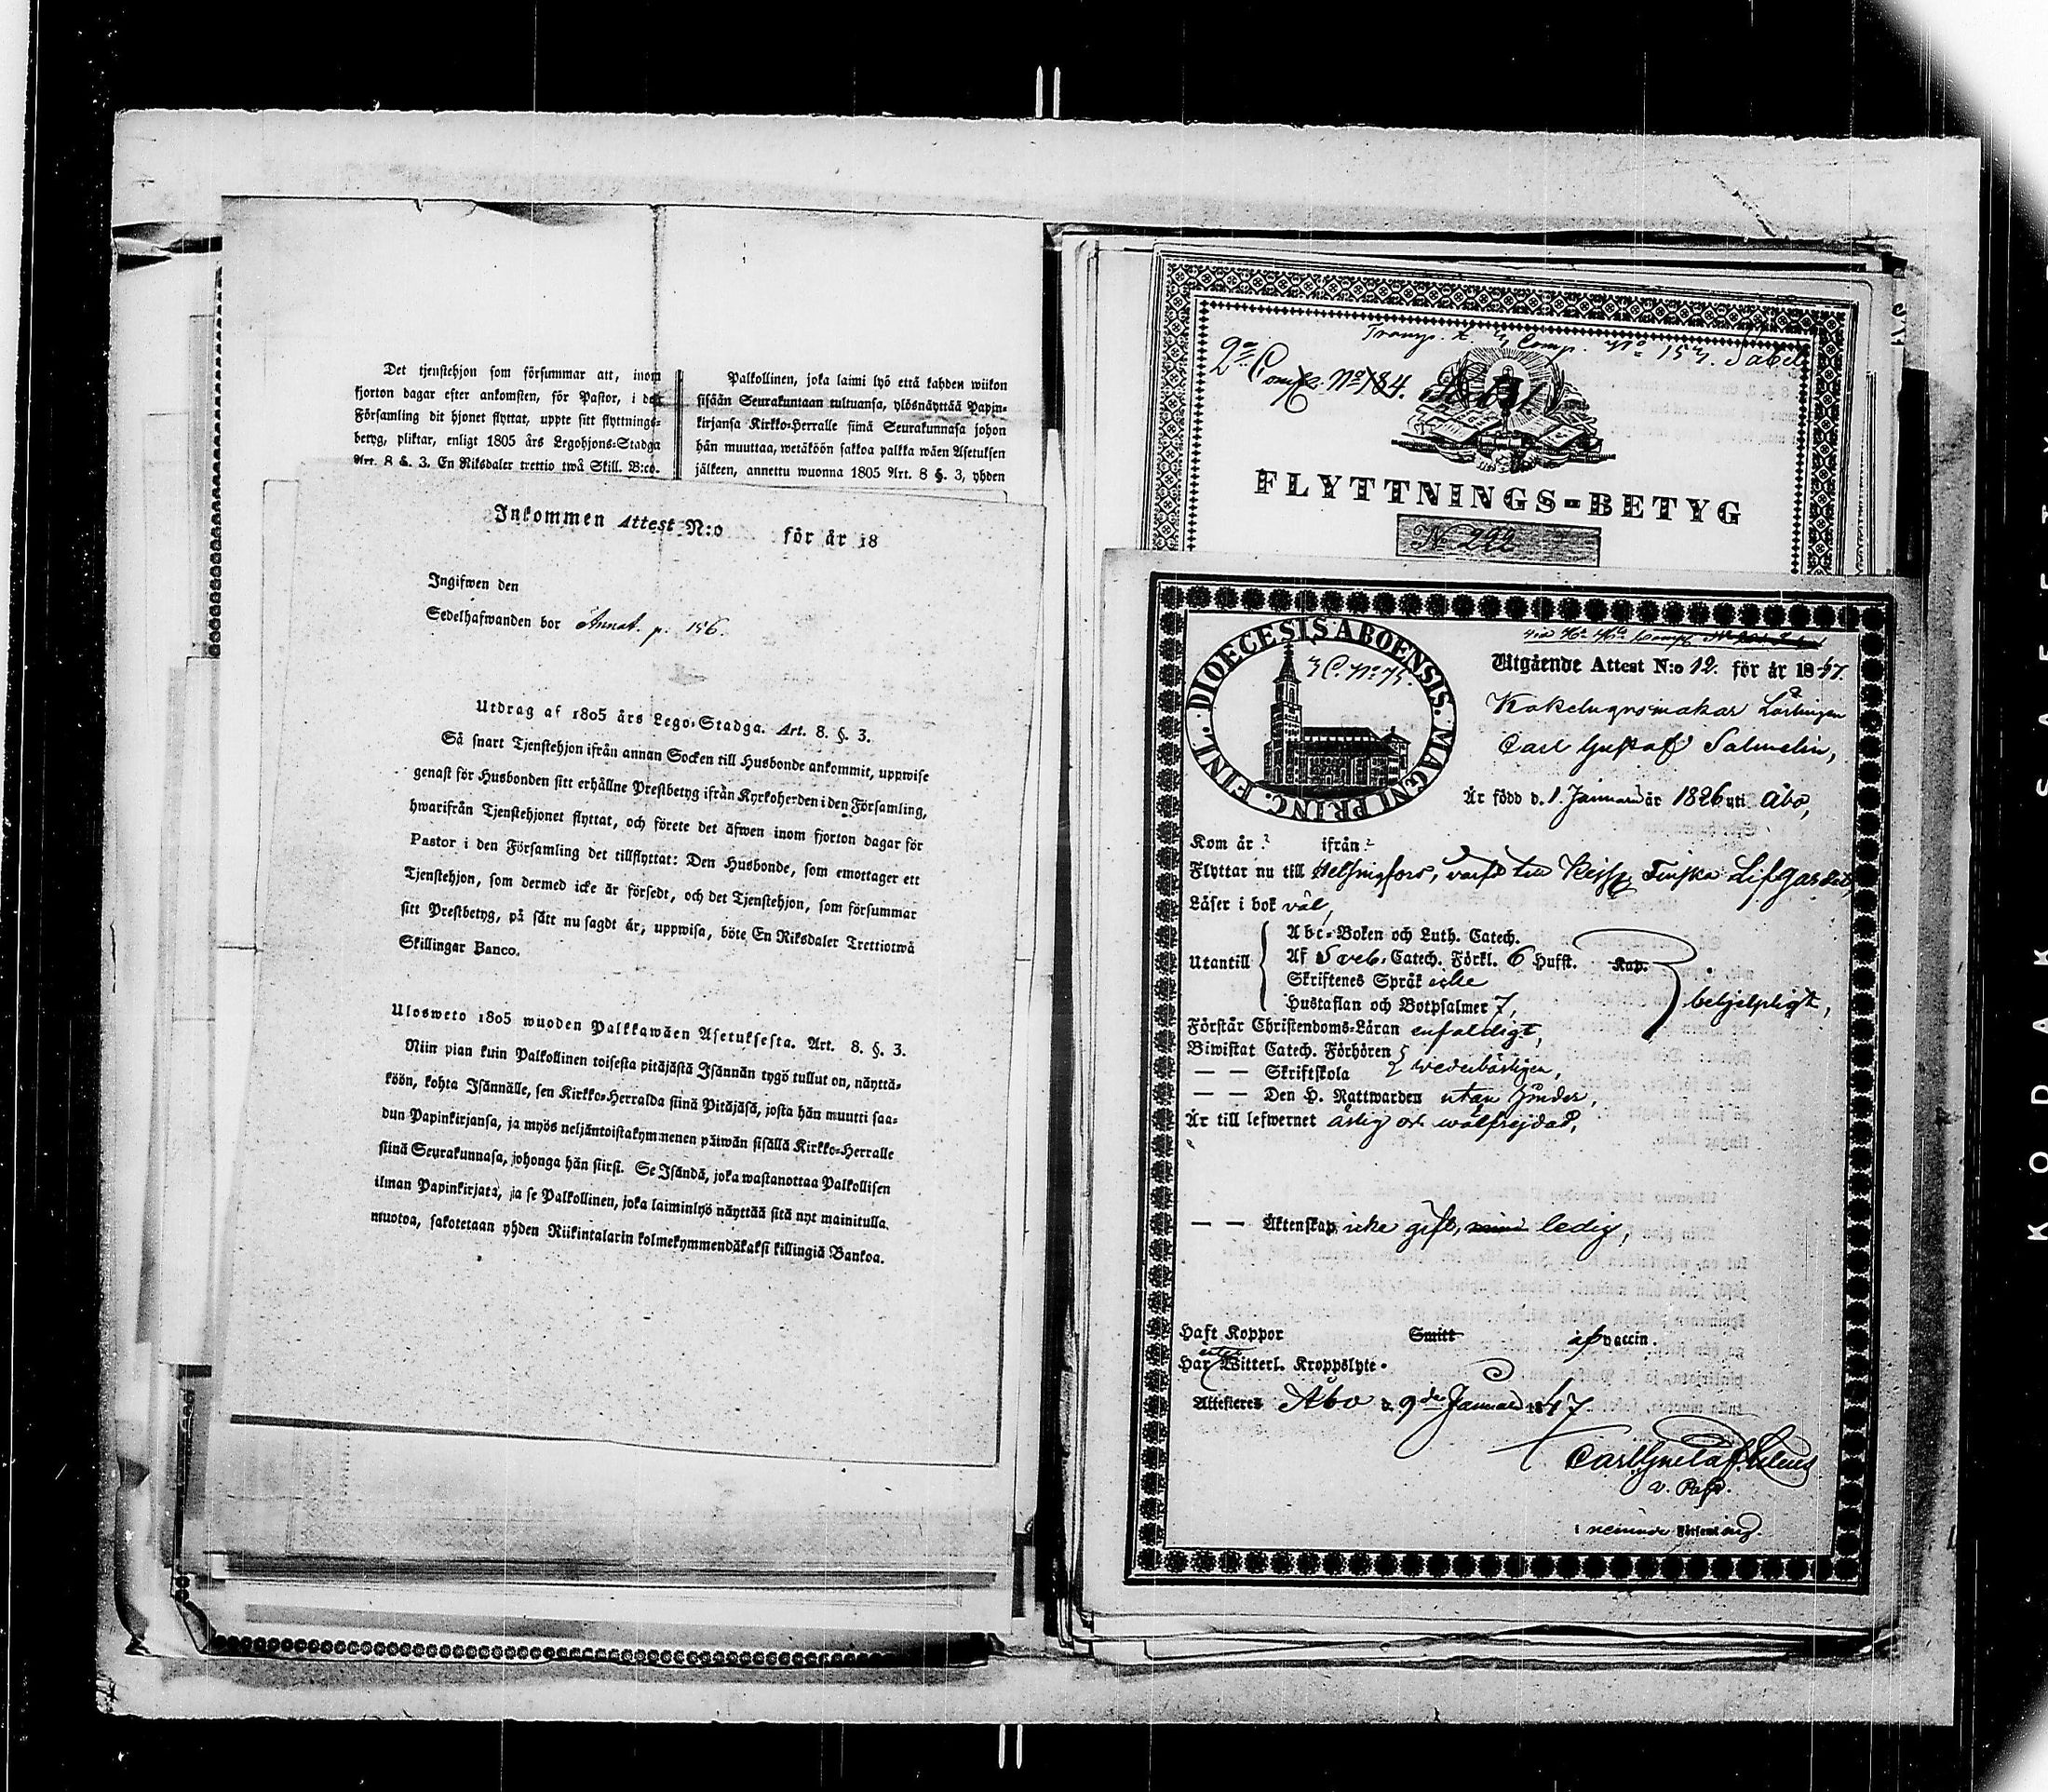 Det tjenstehjon som försummar att, inom
fjorton dagar efter ankomsten, för Pastor, i den
Församling dit hjonet flyttat, uppte sitt flyttnings-
betyg, pliktar, enligt 1805 års Legohjons-Stadga
Art. 8 §. 3. En Riksdaler trettio twå Skill. B:co.
Palkollinen, joka laimi lyö että kahden wiikon
sisään Seurakuntaan tultuansa, ylösnäyttää Papin-
kirjansa Kirkko-Herralle siinä Seurakunnasa johon
hän muuttaa, wetäköön sakkoa palkka wäen Asetuksen
jälkeen, annettu wuonna 1805 Art. 8 §. 3, yhden
Inkommen Attest N:o för år 18
Ingifwen den
Sedelhafwanden bor Annot. p. 156.
Utdrag af 1805 års Lego-Stadga. Art. 8. §. 3.
Så snart Tjenstehjon ifrån annan Socken till Husbonde ankommit, uppwise
genast för Husbonden sitt erhållne Prestbetyg ifrån Kyrkoherden i den Församling,
hwarifrån Tjenstehjonet flyttat, och förete det äfwen inom fjorton dagar för
Pastor i den Församling det tillflyttat: Den Husbonde, som emottager ett
Tjenstehjon, som dermed icke är försedt, och det Tjenstehjon, som försummar
sitt Prestbetyg, på sätt nu sagdt är, uppwisa, böte En Riksdaler Trettiotwå
Skillingar Banco.
Ulosweto 1805 wuoden Palkkawäen Asetuksesta. Art. 8. §. 3.
Niin pian kuin Palkollinen toisesta pitäjästä Isännän tygö tullut on, näyttä-
köön, kohta Isännälle, sen Kirkko-Herralda siinä Pitäjäsä, josta hän muutti saa-
dun Papinkirjansa, ja myös neljäntoistakymmenen päiwän sisällä Kirkko-Herralle
siinä Seurakunnasa, johonga hän siirsi. Se Isändä, joka wastanottaa Palkollisen
ilman Papinkirjata, ja se Palkollinen, joka laiminlyö näyttää sitä nyt mainitulla
muotoa, sakotetaan yhden Riikintalarin kolmekymmendäkaksi killingiä Bankoa.
Transp. t. 4 Comp. No 157. Sabel
2a Comp. No 184.
FLYTTNINGS-BETYG
No 222
DIOECESIS ABOENSIS. MAGNI PRINC. FINL.
4 C. No 75.
Utgående Attest N:o 12. för år 1847.
Kakelugnsmakar Lärlingen
Carl Gustaf Salmelin,
Är född d. 1. Januarii år 1826 uti Åbo,
Kom år ? ifrån ?
Flyttar nu till Helsingfors, Finska Lifgardet,
Läser i bok väl,
Utantill
Abc-Boken och Luth. Catech.
Af Sveb. Catech. Förkl. 6 Hufst. Kap.
Skriftenes Språk icke
Hustaflan och Botpsalmer 7,
behjelpligt,
Förstår Christendoms-Läran enfaldigt,
Biwistat Catech. Förhören
— — Skriftskola wederbörligen,
— — Den H. Nattwarden utan hinder,
Är till lefwernet ärlig och wälfrejdad,
— — Äktenskap icke gift, ledig,
Haft Koppor Smitt af vaccin.
Har Witterl. Kroppslyte.
Attesteres Åbo d. 9de Januarii 1847
Carl Gustaf
v. Past.
i nämnde Församling
KODAK SAFETY